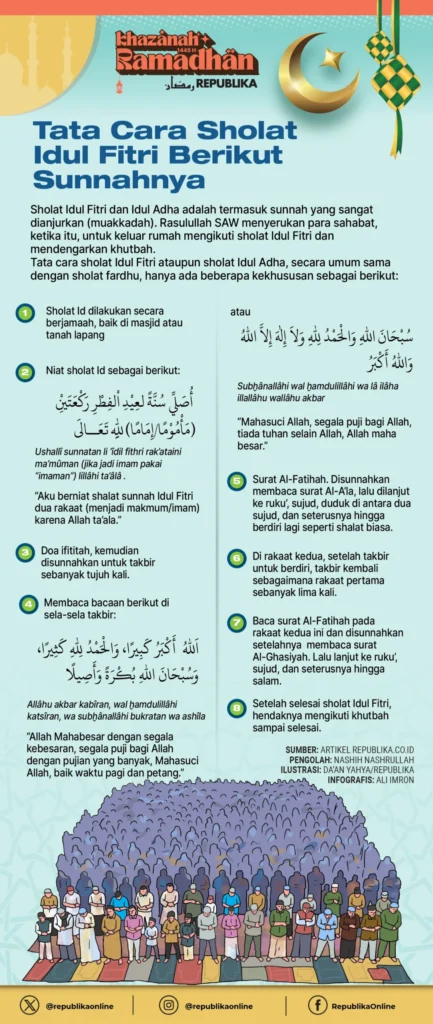 Khazanah
1445 H
Ramadhan
رمضان REPUBLIKA
Tata Cara Sholat
Idul Fitri Berikut
Sunnahnya
Sholat Idul Fitri dan Idul Adha adalah termasuk sunnah yang sangat
dianjurkan (muakkadah). Rasulullah SAW menyerukan para sahabat,
ketika itu, untuk keluar rumah mengikuti sholat Idul Fitri dan
mendengarkan khutbah.
Tata cara sholat Idul Fitri ataupun sholat Idul Adha, secara umum sama
dengan sholat fardhu, hanya ada beberapa kekhususan sebagai berikut:
1 Sholat Id dilakukan secara
berjamaah, baik di masjid atau
tanah lapang
2 Niat sholat Id sebagai berikut:
أُصَلِّي سُنَّةً لِعِيْدِ الْفِطْرِ رَكْعَتَيْنِ
(مَأْمُوْمًا/إِمَامًا) لِلّٰهِ تَعَــالَى
Ushallî sunnatan li ‘îdil fithri rak’ataini
ma’mûman (jika jadi imam pakai
“imaman”) lillâhi ta’âlâ .
“Aku berniat shalat sunnah Idul Fitri
dua rakaat (menjadi makmum/imam)
karena Allah ta’ala.”
3 Doa ifititah, kemudian
disunnahkan untuk takbir
sebanyak tujuh kali.
4 Membaca bacaan berikut di
sela-sela takbir:
اَللهُ أَكْبَرُ كَبِيرًا، وَالْحَمْدُ لِلّٰهِ كَثِيْرًا،
وَسُبْحَانَ اللهِ بُكْرَةً وَأَصِيلًا
Allâhu akbar kabîran, wal ḫamdulillâhi
katsîran, wa subḫânallâhi bukratan wa ashîla
“Allah Mahabesar dengan segala
kebesaran, segala puji bagi Allah
dengan pujian yang banyak, Mahasuci
Allah, baik waktu pagi dan petang.”
atau
سُبْحَانَ اللهِ وَالْحَمْدُ لِلّٰهِ وَلاَ إِلٰهَ إِلاَّ اللهُ
وَاللهُ أَكْبَرُ
Subḫânallâhi wal ḫamdulillâhi wa lâ ilâha
illallâhu wallâhu akbar
“Mahasuci Allah, segala puji bagi Allah,
tiada tuhan selain Allah, Allah maha
besar.”
5 Surat Al-Fatihah. Disunnahkan
membaca surat Al-A'la, lalu dilanjut
ke ruku’, sujud, duduk di antara dua
sujud, dan seterusnya hingga
berdiri lagi seperti shalat biasa.
6 Di rakaat kedua, setelah takbir
untuk berdiri, takbir kembali
sebagaimana rakaat pertama
sebanyak lima kali.
7 Baca surat Al-Fatihah pada
rakaat kedua ini dan disunnahkan
setelahnya membaca surat
Al-Ghasiyah. Lalu lanjut ke ruku’,
sujud, dan seterusnya hingga
salam.
8 Setelah selesai sholat Idul Fitri,
hendaknya mengikuti khutbah
sampai selesai.
SUMBER: ARTIKEL REPUBLIKA.CO.ID
PENGOLAH: NASHIH NASHRULLAH
ILUSTRASI: DA'AN YAHYA/REPUBLIKA
INFOGRAFIS: ALI IMRON
@republikaonline
@republikaonline
RepublikaOnline